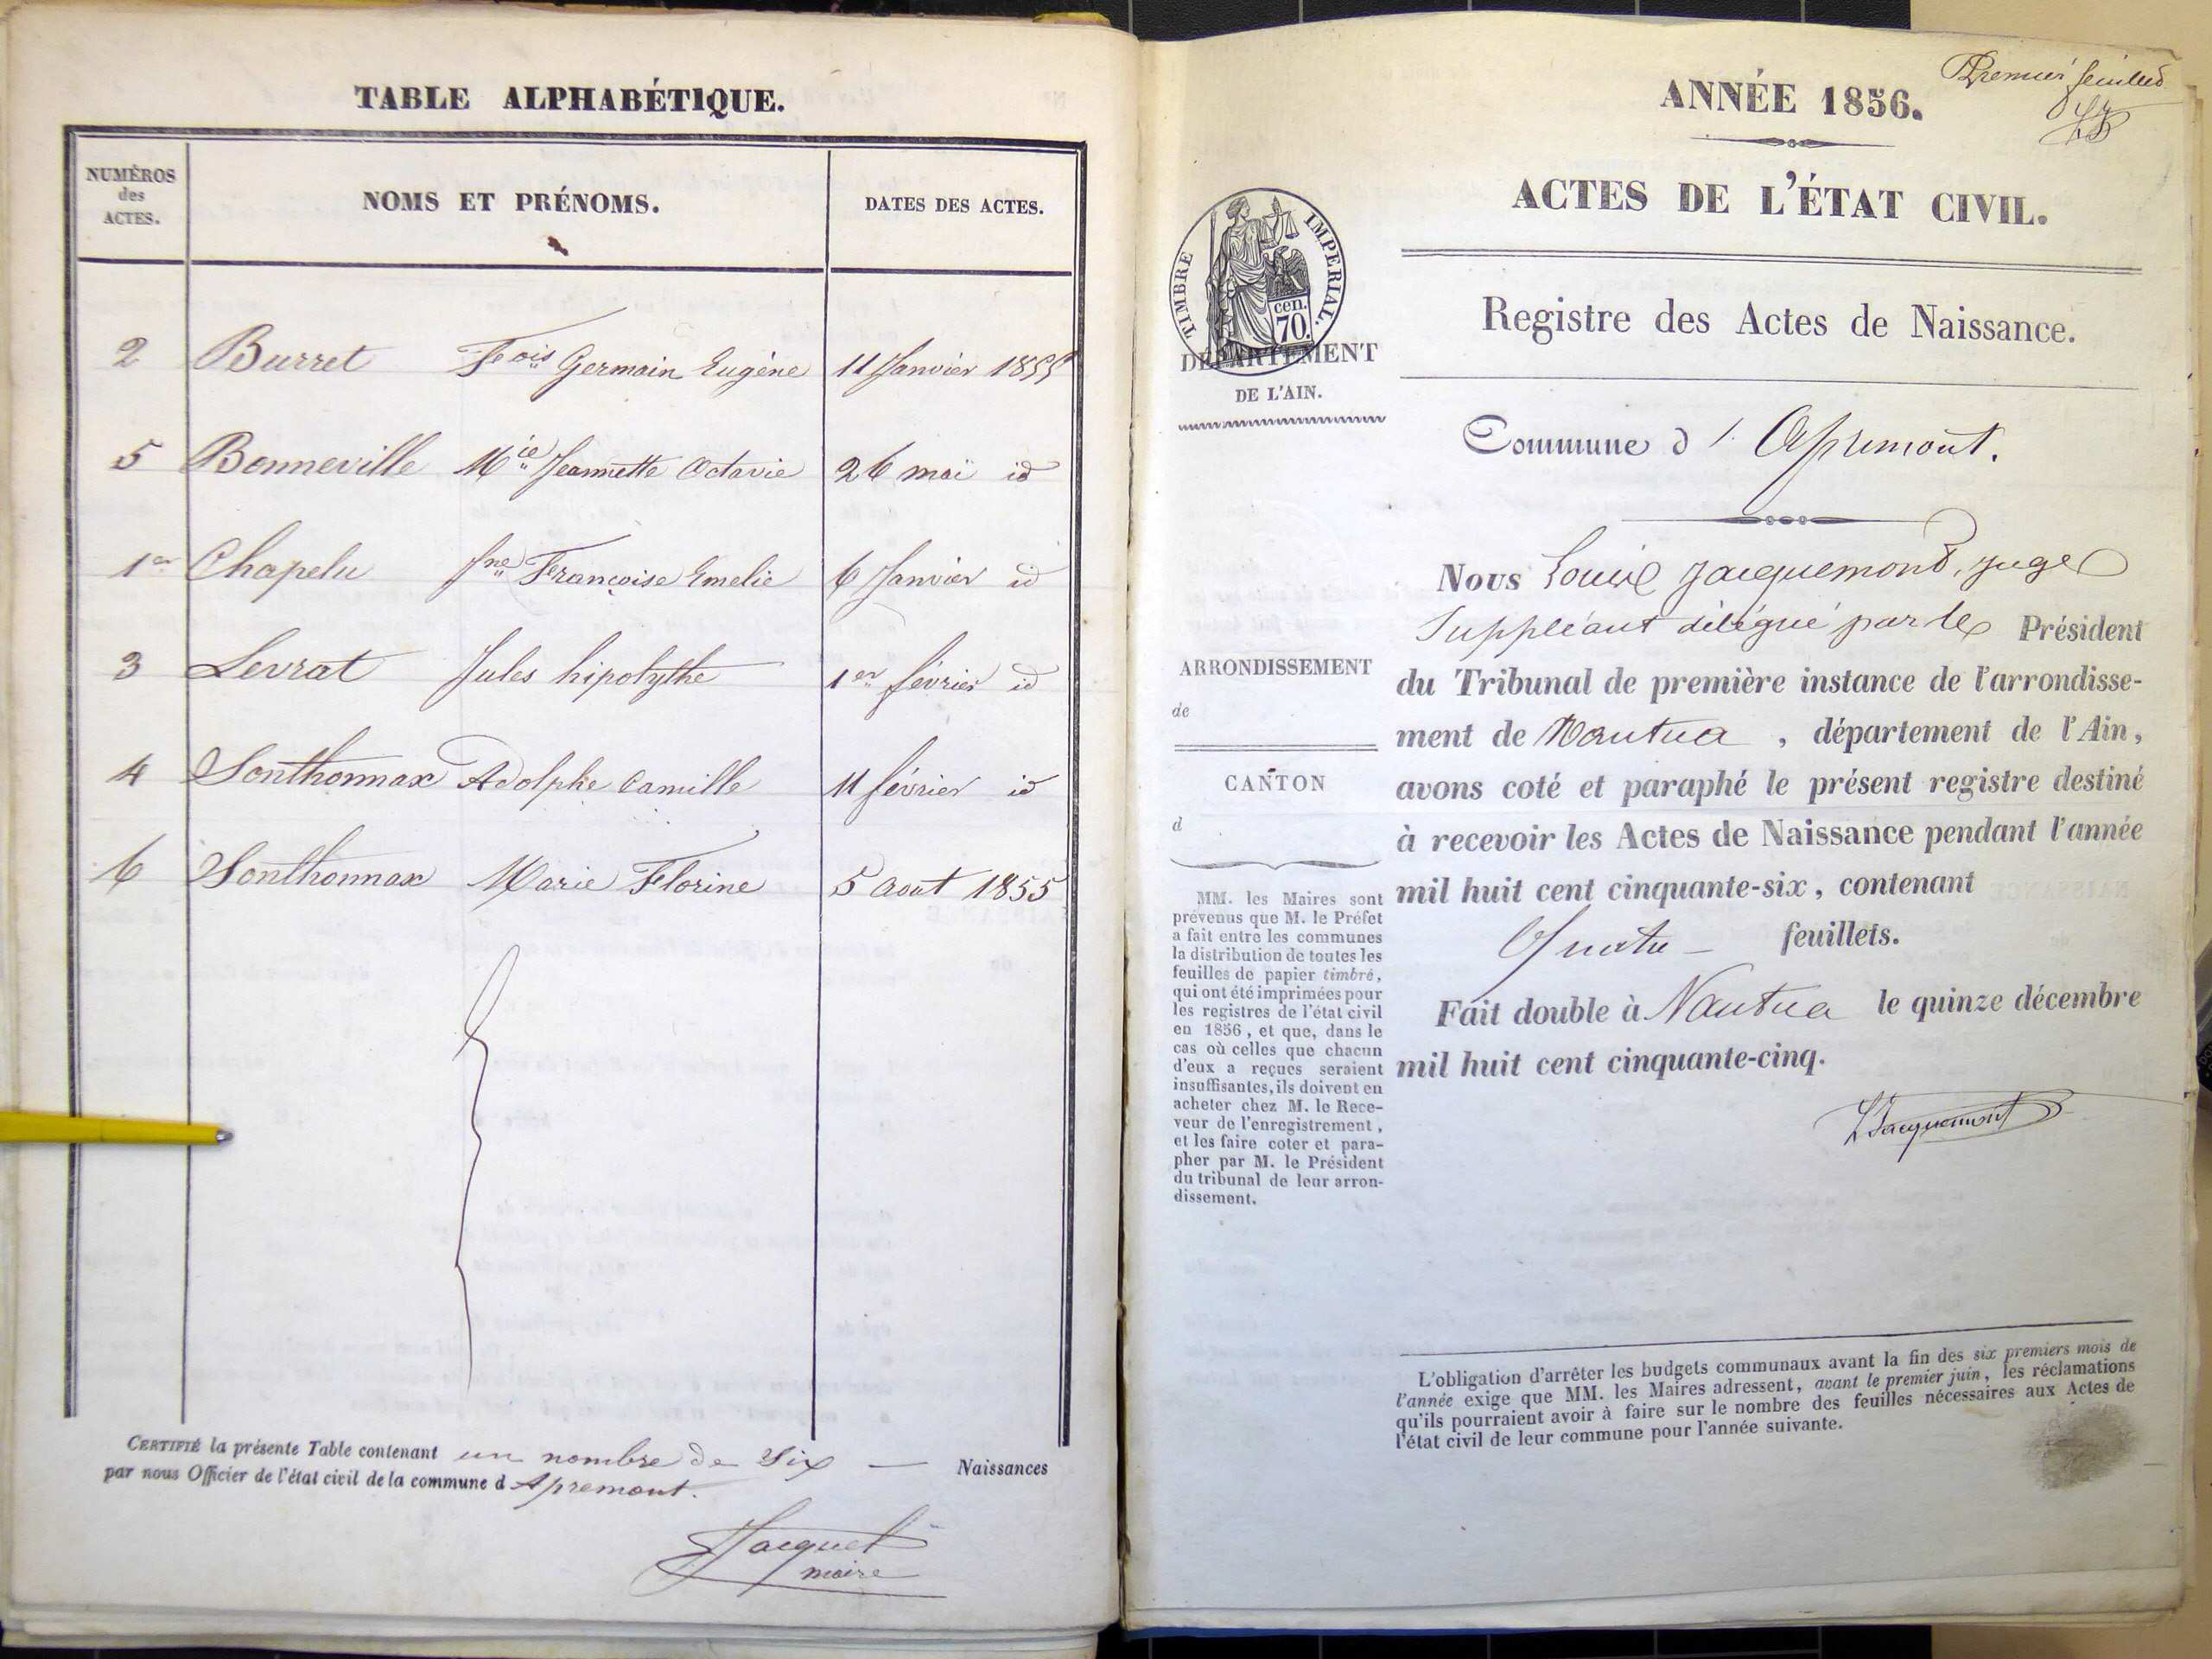 TABLE ALPHABÉTIQUE.
NUMÉROS des ACTES. NOMS ET PRÉNOMS. DATES DES ACTES.
2 Burret Fois Germain Eugène 11 Janvier 1855
5 Bonneville Mie Jeannette Octavie 26 mai id
1er Chapelu Jne Françoise Emelie 6 Janvier id
3 Levrat Jules hipolythe 1er février id
4 Sonthonnax Adolphe Camille 11 février id
6 Sonthonnax Marie Florine 5 Aout 1855
CERTIFIÉ la présente Table contenant un nombre de Six — Naissances
par nous Officier de l'état civil de la commune d Apremont.
Jacquet
maire
Premier feuillet
LJ
ANNÉE 1856.
ACTES DE L'ÉTAT CIVIL.
TIMBRE IMPERIAL.
cen.
70.
DÉPARTEMENT
DE L'AIN.
Registre des Actes de Naissance.
Commune d'Apremont.
ARRONDISSEMENT
de
CANTON
d
MM. les Maires sont
prévenus que M. le Préfet
a fait entre les communes
la distribution de toutes les
feuilles de papier timbré,
qui ont été imprimées pour
les registres de l'état civil
en 1856, et que, dans le
cas où celles que chacun
d'eux a reçues seraient
insuffisantes, ils doivent en
acheter chez M. le Rece-
veur de l'enregistrement,
et les faire coter et para-
pher par M. le Président
du tribunal de leur arron-
dissement.
Nous Louis Jacquemont, juge
Suppléant délégué par le Président
du Tribunal de première instance de l'arrondisse-
ment de Nantua, département de l'Ain,
avons coté et paraphé le présent registre destiné
à recevoir les Actes de Naissance pendant l'année
mil huit cent cinquante-six, contenant
Quatre — feuillets.
Fait double à Nantua le quinze décembre
mil huit cent cinquante-cinq.
LJacquemont
L'obligation d'arrêter les budgets communaux avant la fin des six premiers mois de
l'année exige que MM. les Maires adressent, avant le premier juin, les réclamations
qu'ils pourraient avoir à faire sur le nombre des feuilles nécessaires aux Actes de
l'état civil de leur commune pour l'année suivante.